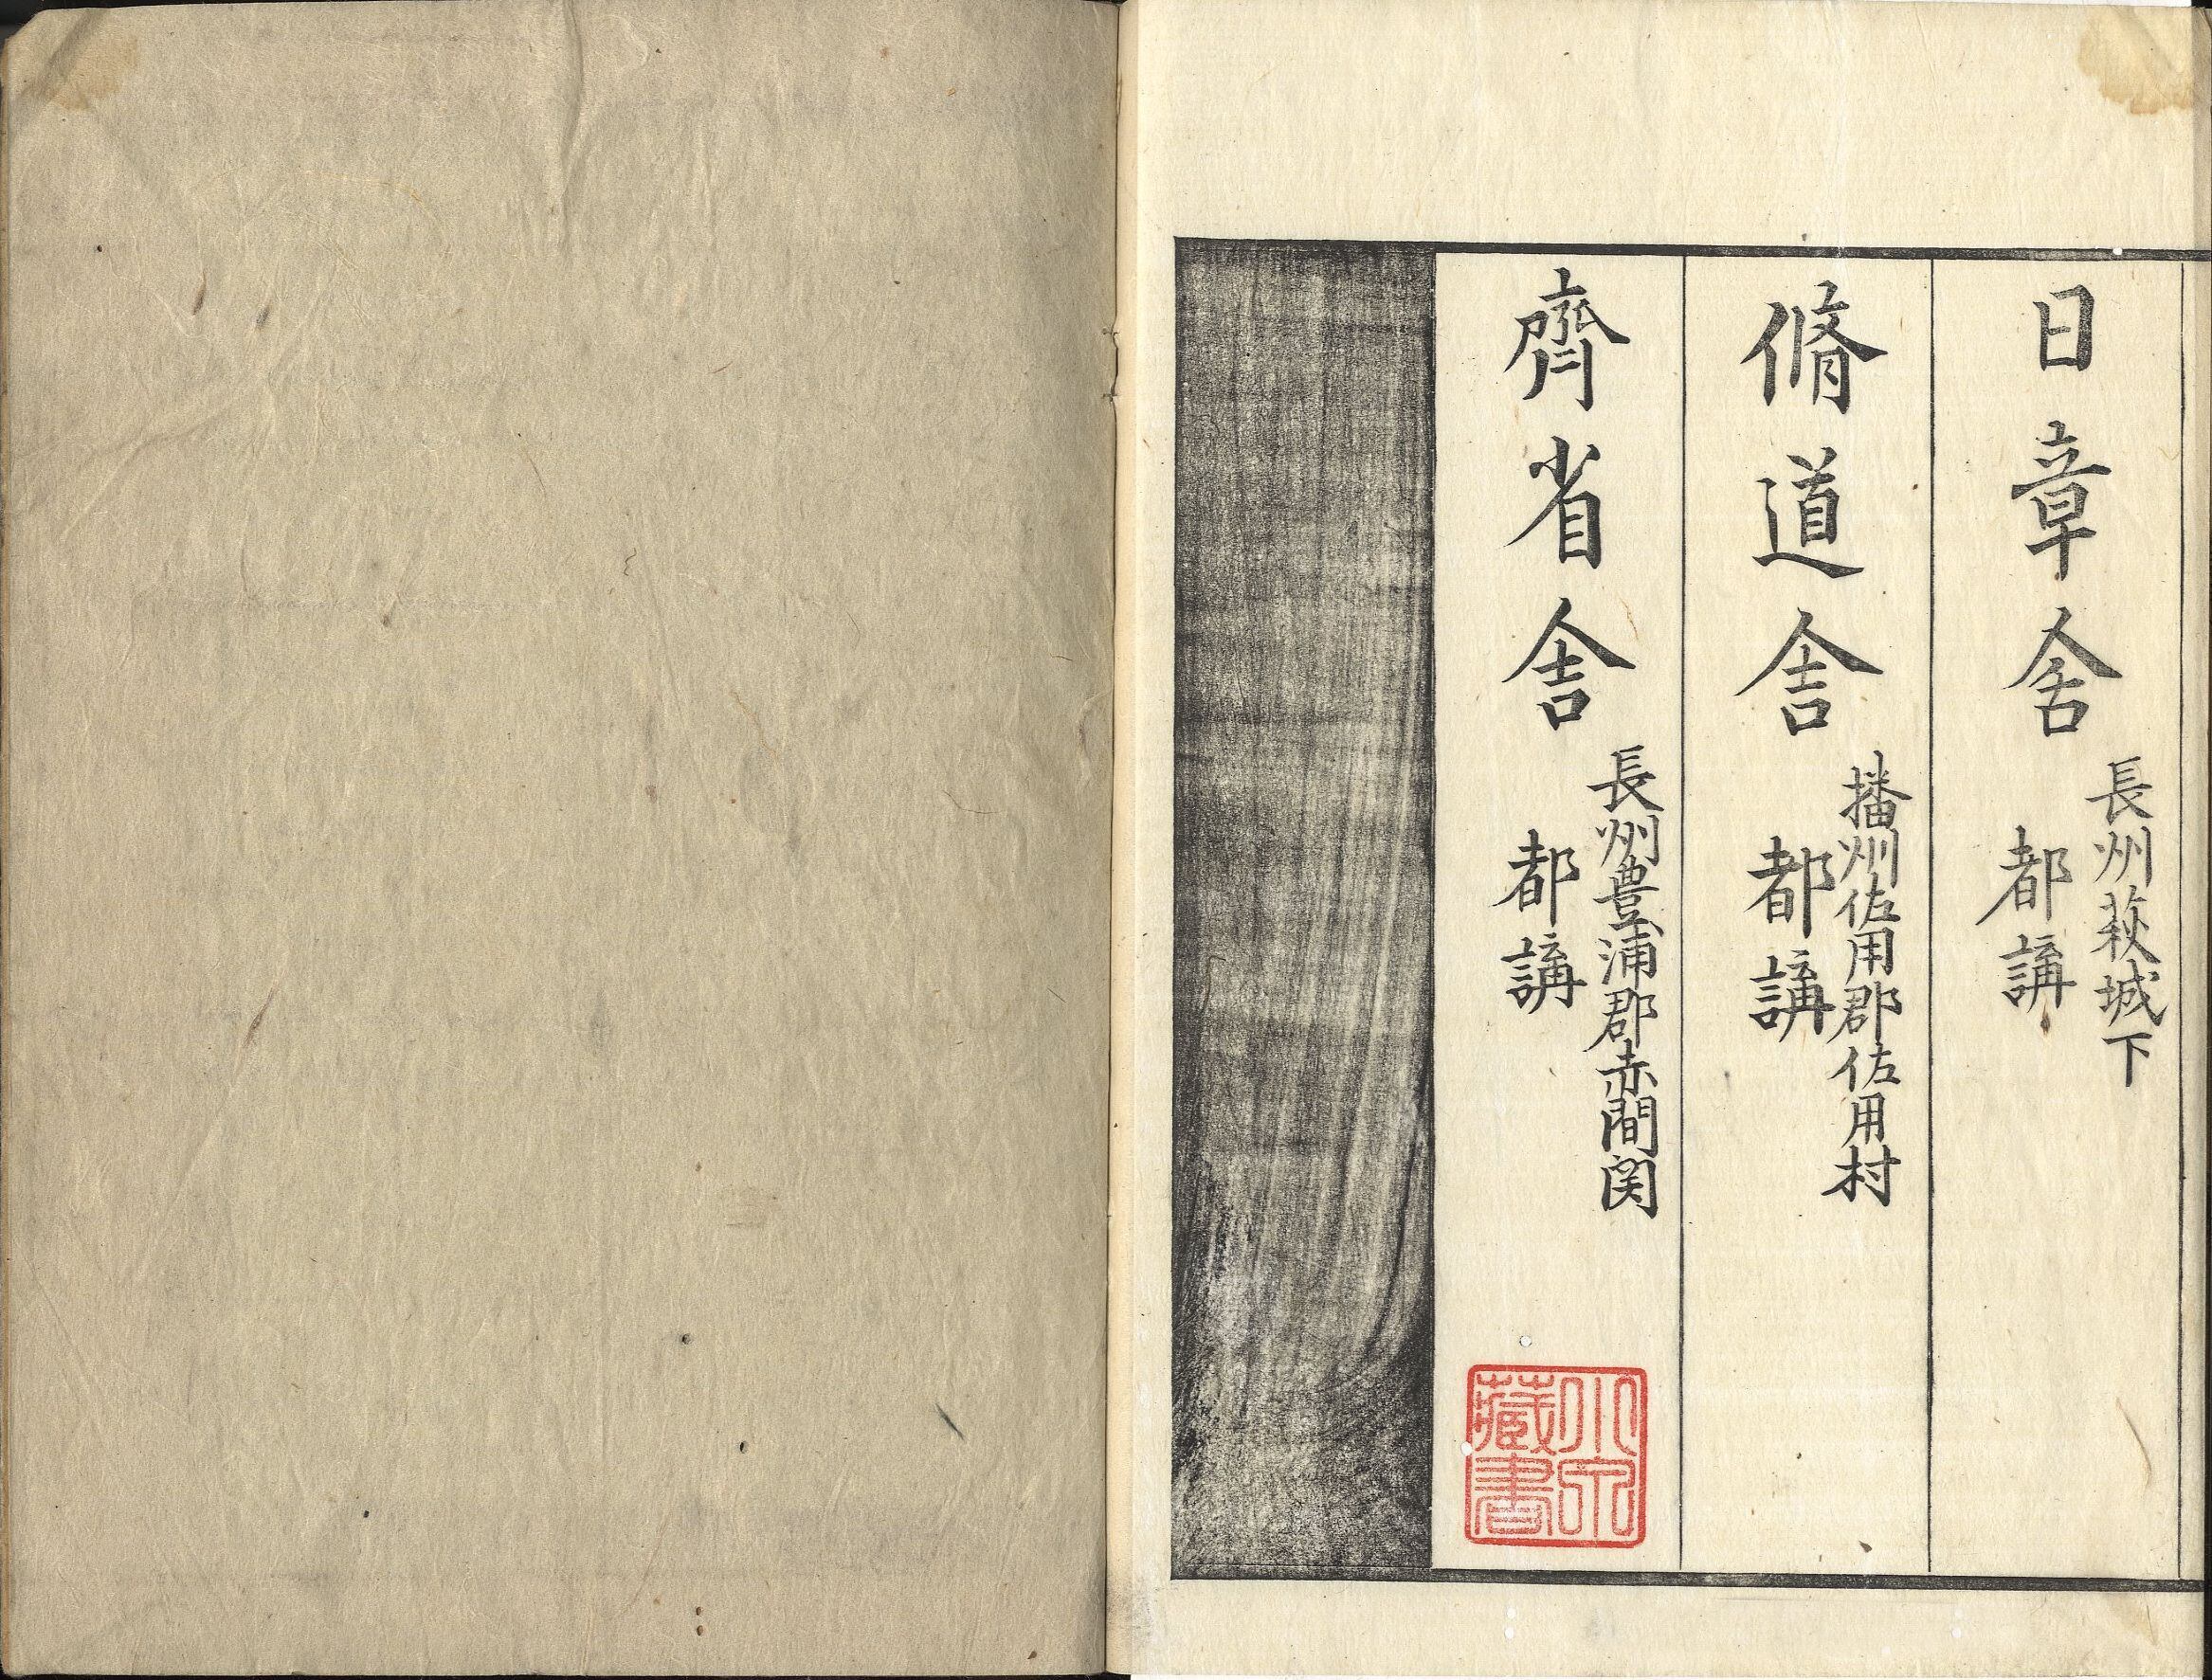 日章舎
長州萩城下
都講
脩道舎
播州佐用郡佐用村
都講
齊省舎
長州豊浦郡赤間関
都講
藏書